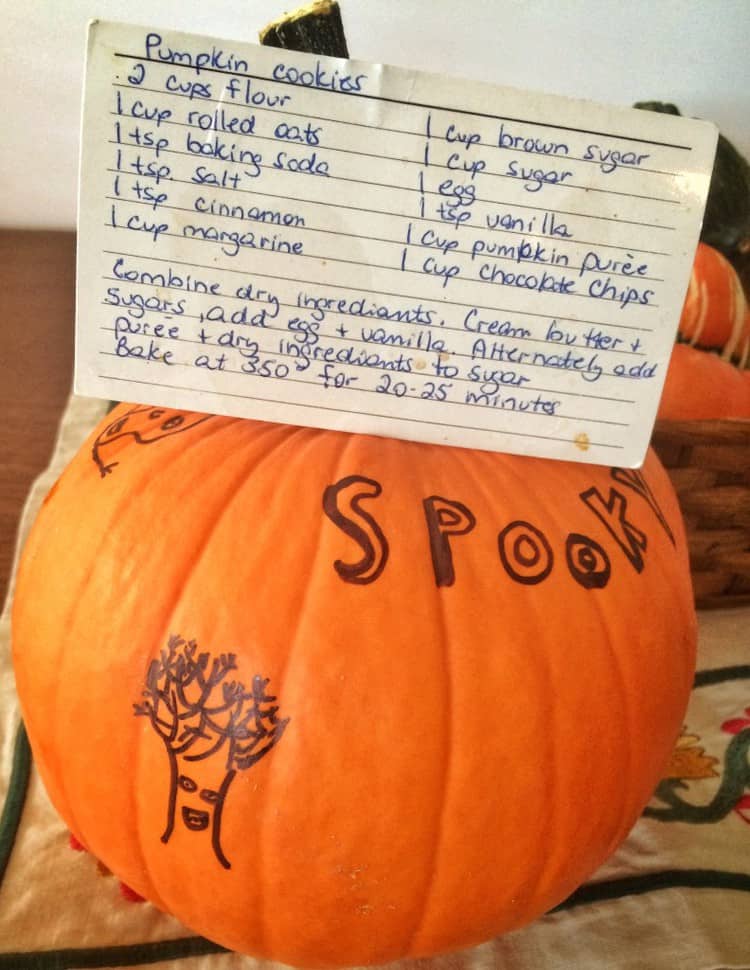 Pumpkin cookies
.2 cups flour
1 cup rolled oats
1 tsp baking soda
1 tsp. salt
1 tsp cinnamon
1 cup margarine
1 cup brown sugar
1 cup sugar
1 egg
1 tsp vanilla
1 cup pumpkin purèe
1 cup chocolate chips
Combine dry ingredients. Cream butter +
sugars, add egg + vanilla. Alternately add
purèe + dry ingredients to sugar
Bake at 350° for 20-25 minutes
SPOOKY